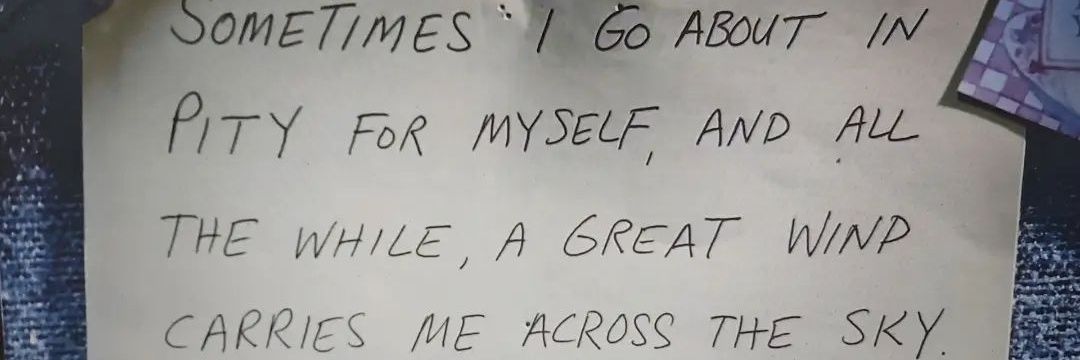 SOMETIMES I GO ABOUT IN
PITY FOR MYSELF, AND ALL
THE WHILE, A GREAT WIND
CARRIES ME ACROSS THE SKY.